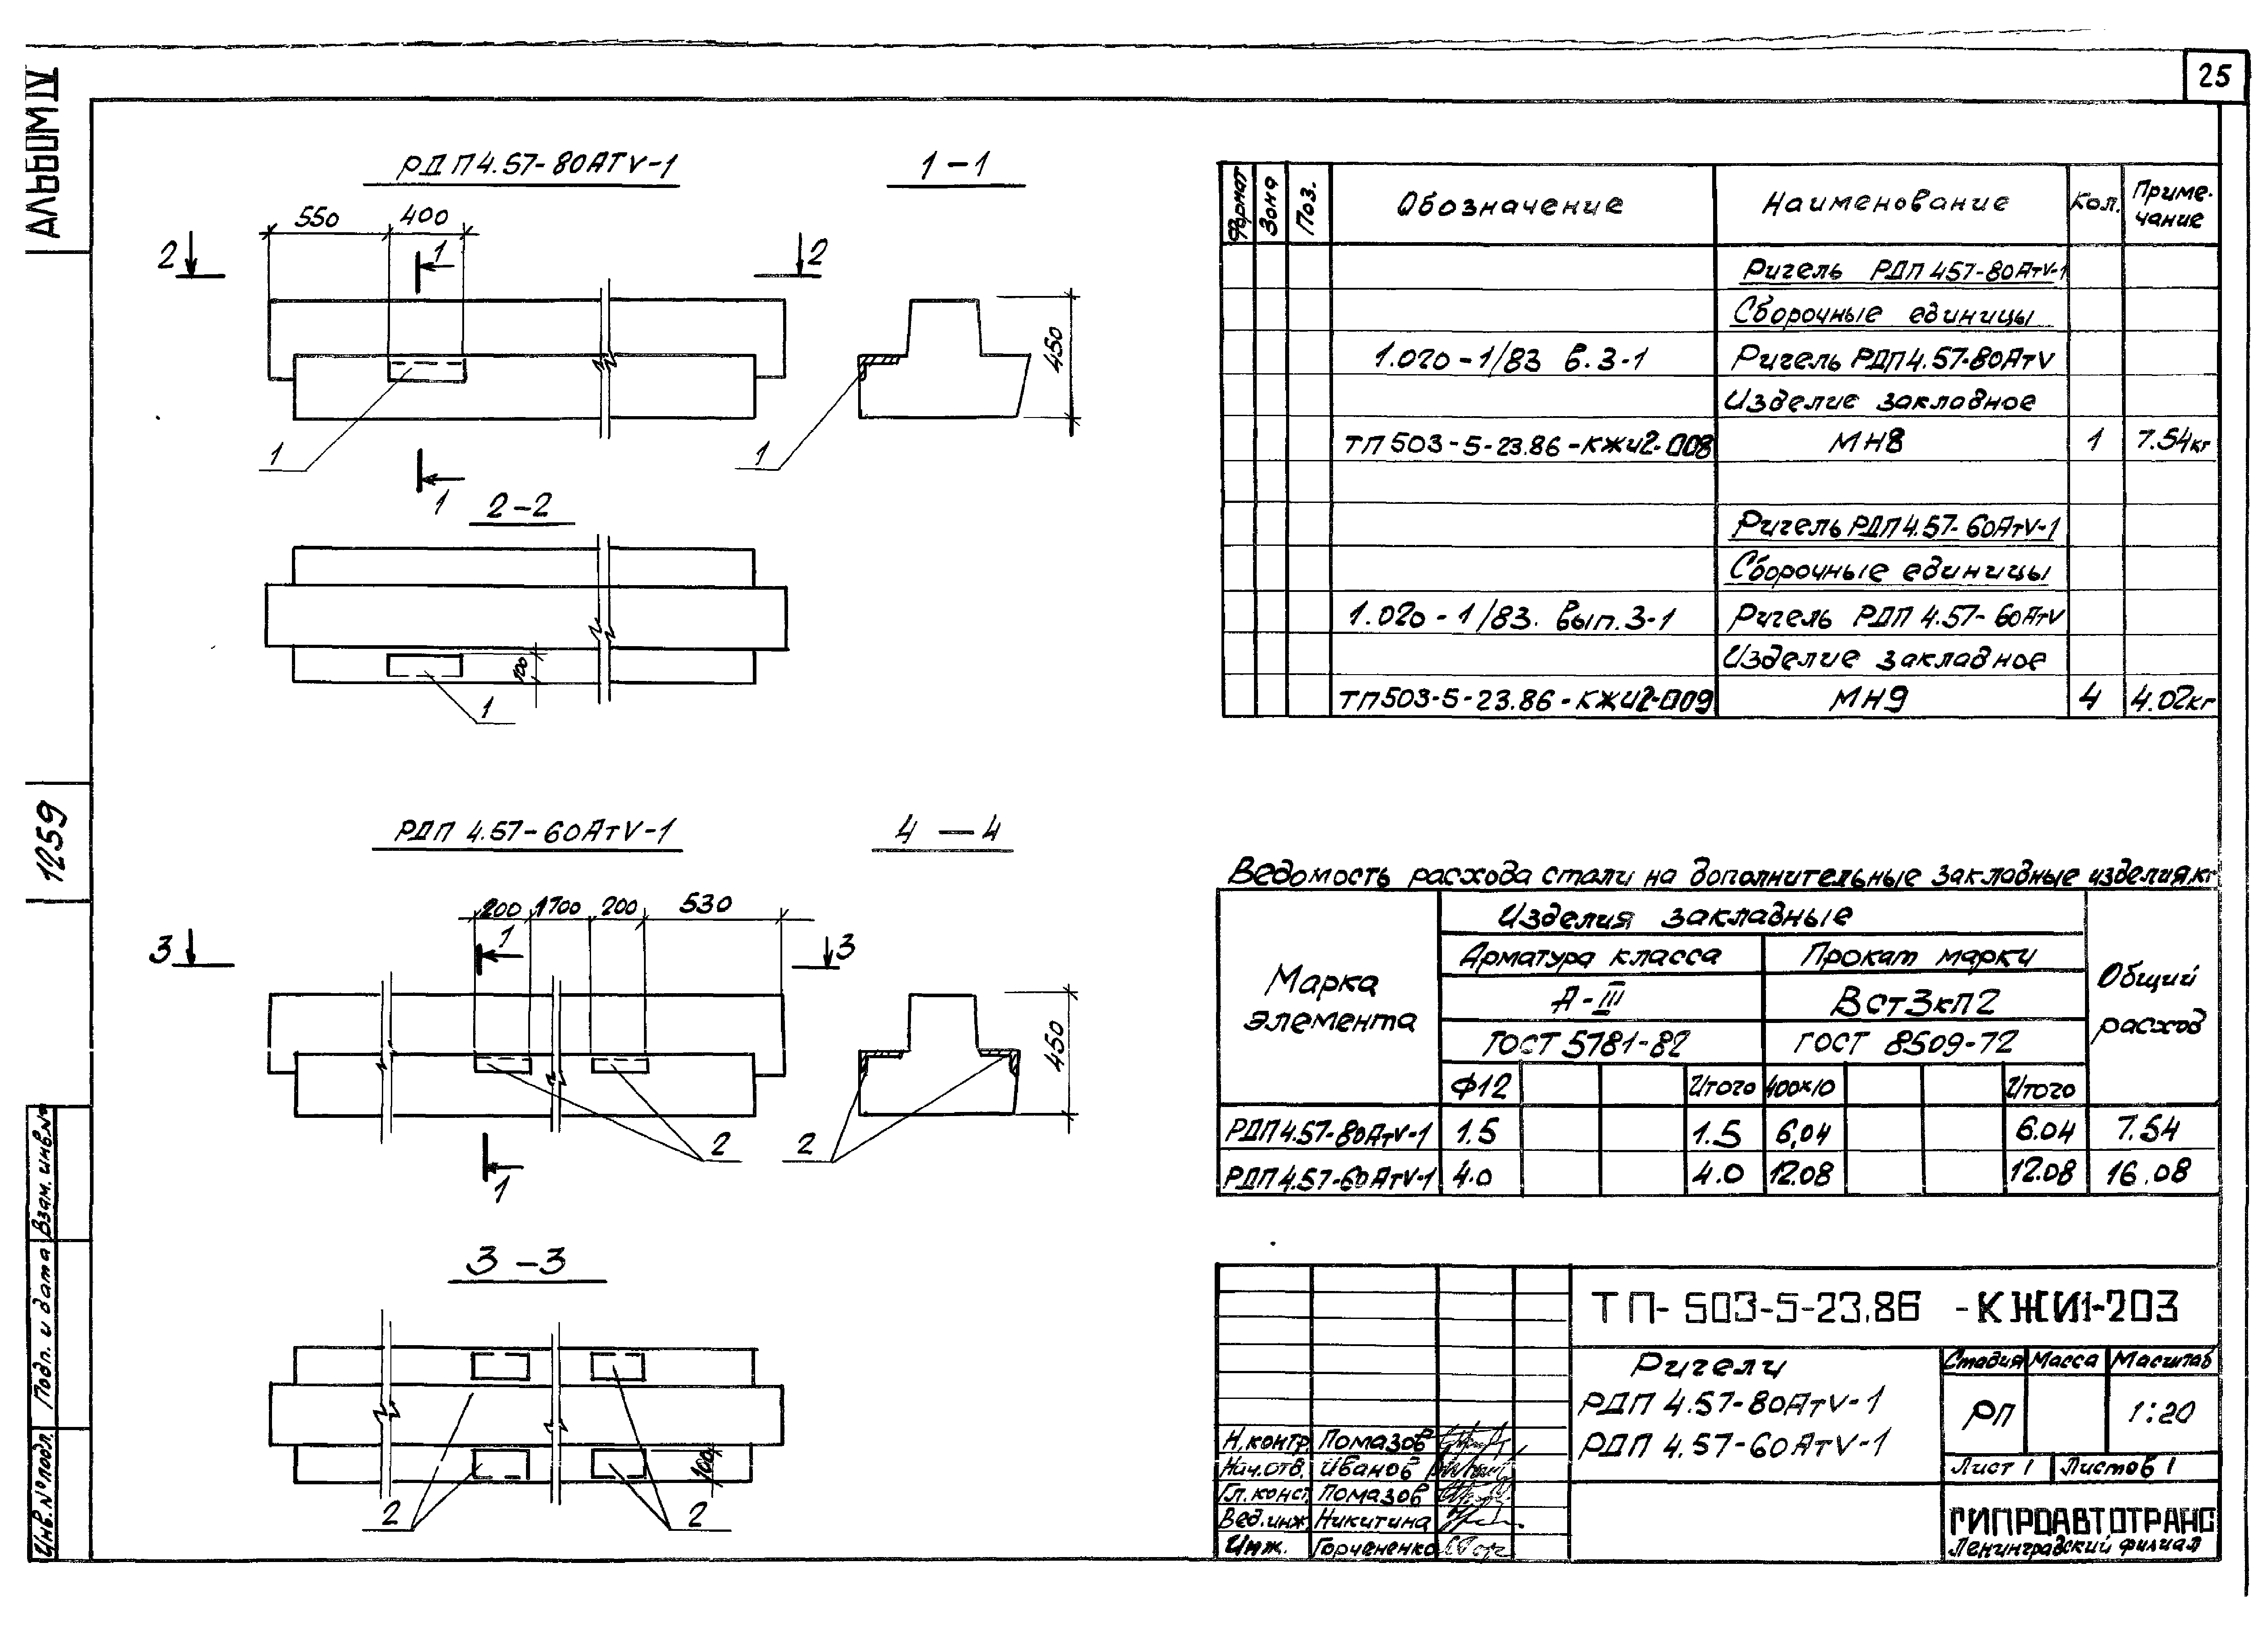 25
Альбом IV
1259
Взам. инв. №
Подп. и дата
Инв. № подл.
РДП4.57-80АТV-1
1-1
550
400
2
2
1
450
1
1
1
2-2
100
1
РДП 4.57-60АтV-1
4-4
200
1700
200
530
3
3
1
450
2
2
1
3-3
100
2
2
Формат
Зона
Поз.
Обозначение
Наименование
Кол.
Приме-
чание
Ригель РДП 457-80АтV-1
Сборочные единицы
1.020-1/83 в.3-1
Ригель РДП4.57-80АтV
Изделие закладное
ТП503-5-23.86-КЖИ2-008
МН8
1
7.54кг
Ригель РДП4.57-60АтV-1
Сборочные единицы
1.020-1/83. вып.3-1
Ригель РДП 4.57-60АтV
Изделие закладное
ТП503-5-23.86-КЖИ2-009
МН9
4
4.02кг
Ведомость расхода стали на дополнительные закладные изделия,кг
Марка
элемента
Изделия закладные
Арматура класса
Прокат марки
А-III
ВСт3кп2
ГОСТ 5781-82
ГОСТ 8509-72
Общий
расход
Ф12
Итого
400×10
Итого
РДП4.57-80АтV-1
1.5
1.5
6,04
6.04
7.54
РДП4.57-60АтV-1
4.0
4.0
12.08
12.08
16.08
ТП-503-5-23.86 -КЖИ1-203
Ригели
РДП 4.57-80АтV-1
РДП 4.57-60АтV-1
Стадия
Масса
Масштаб
РП
1:20
Лист 1
Листов 1
ГИПРОАВТОТРАНС
Ленинградский филиал
Н.контр. Помазов
Нач.отв. Иванов
Гл.конст. Помазов
Вед.инж. Никитина
Инж. Горчененко